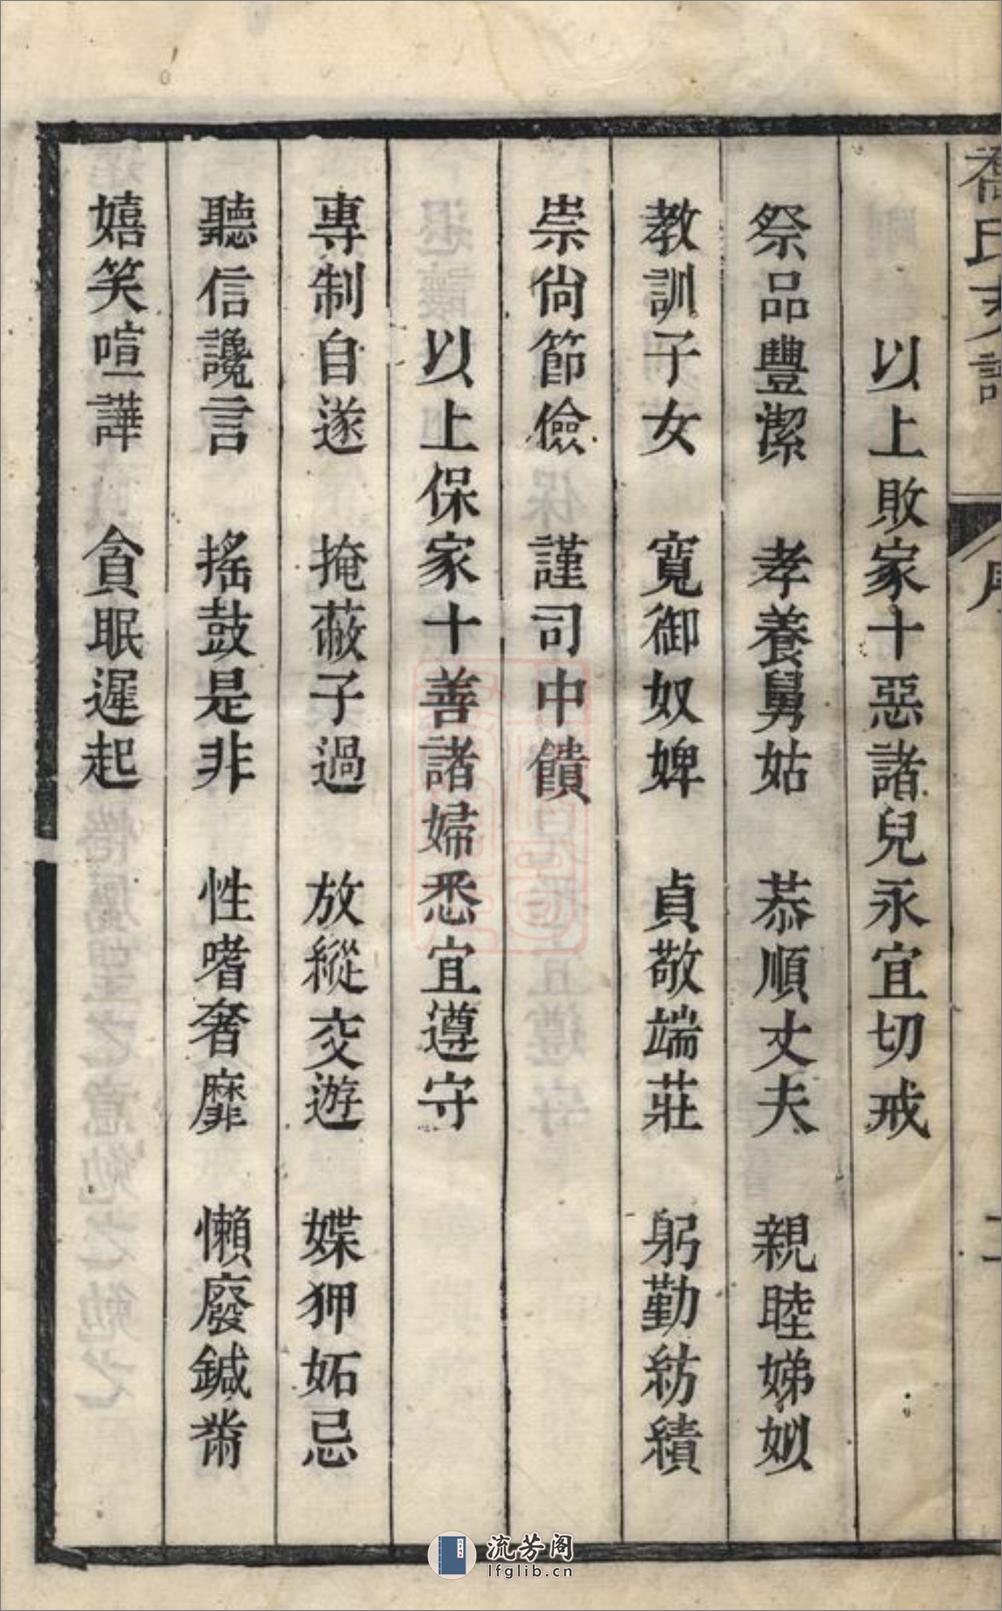 喬氏支譜
序
以上敗家十惡諸兒永宜切戒
祭品豐潔 孝養舅姑 恭順丈夫 親睦娣姒
教訓子女 寬御奴婢 貞敬端莊 躬勤紡績
崇尙節儉 謹司中饋
以上保家十善諸婦悉宜遵守
專制自遂 掩蔽子過 放縱交遊 媟狎妬忌
聽信讒言 搖鼓是非 性嗜奢靡 懶廢鍼黹
嬉笑喧譁 貪眠遲起
流芳阁
lfglib.cn